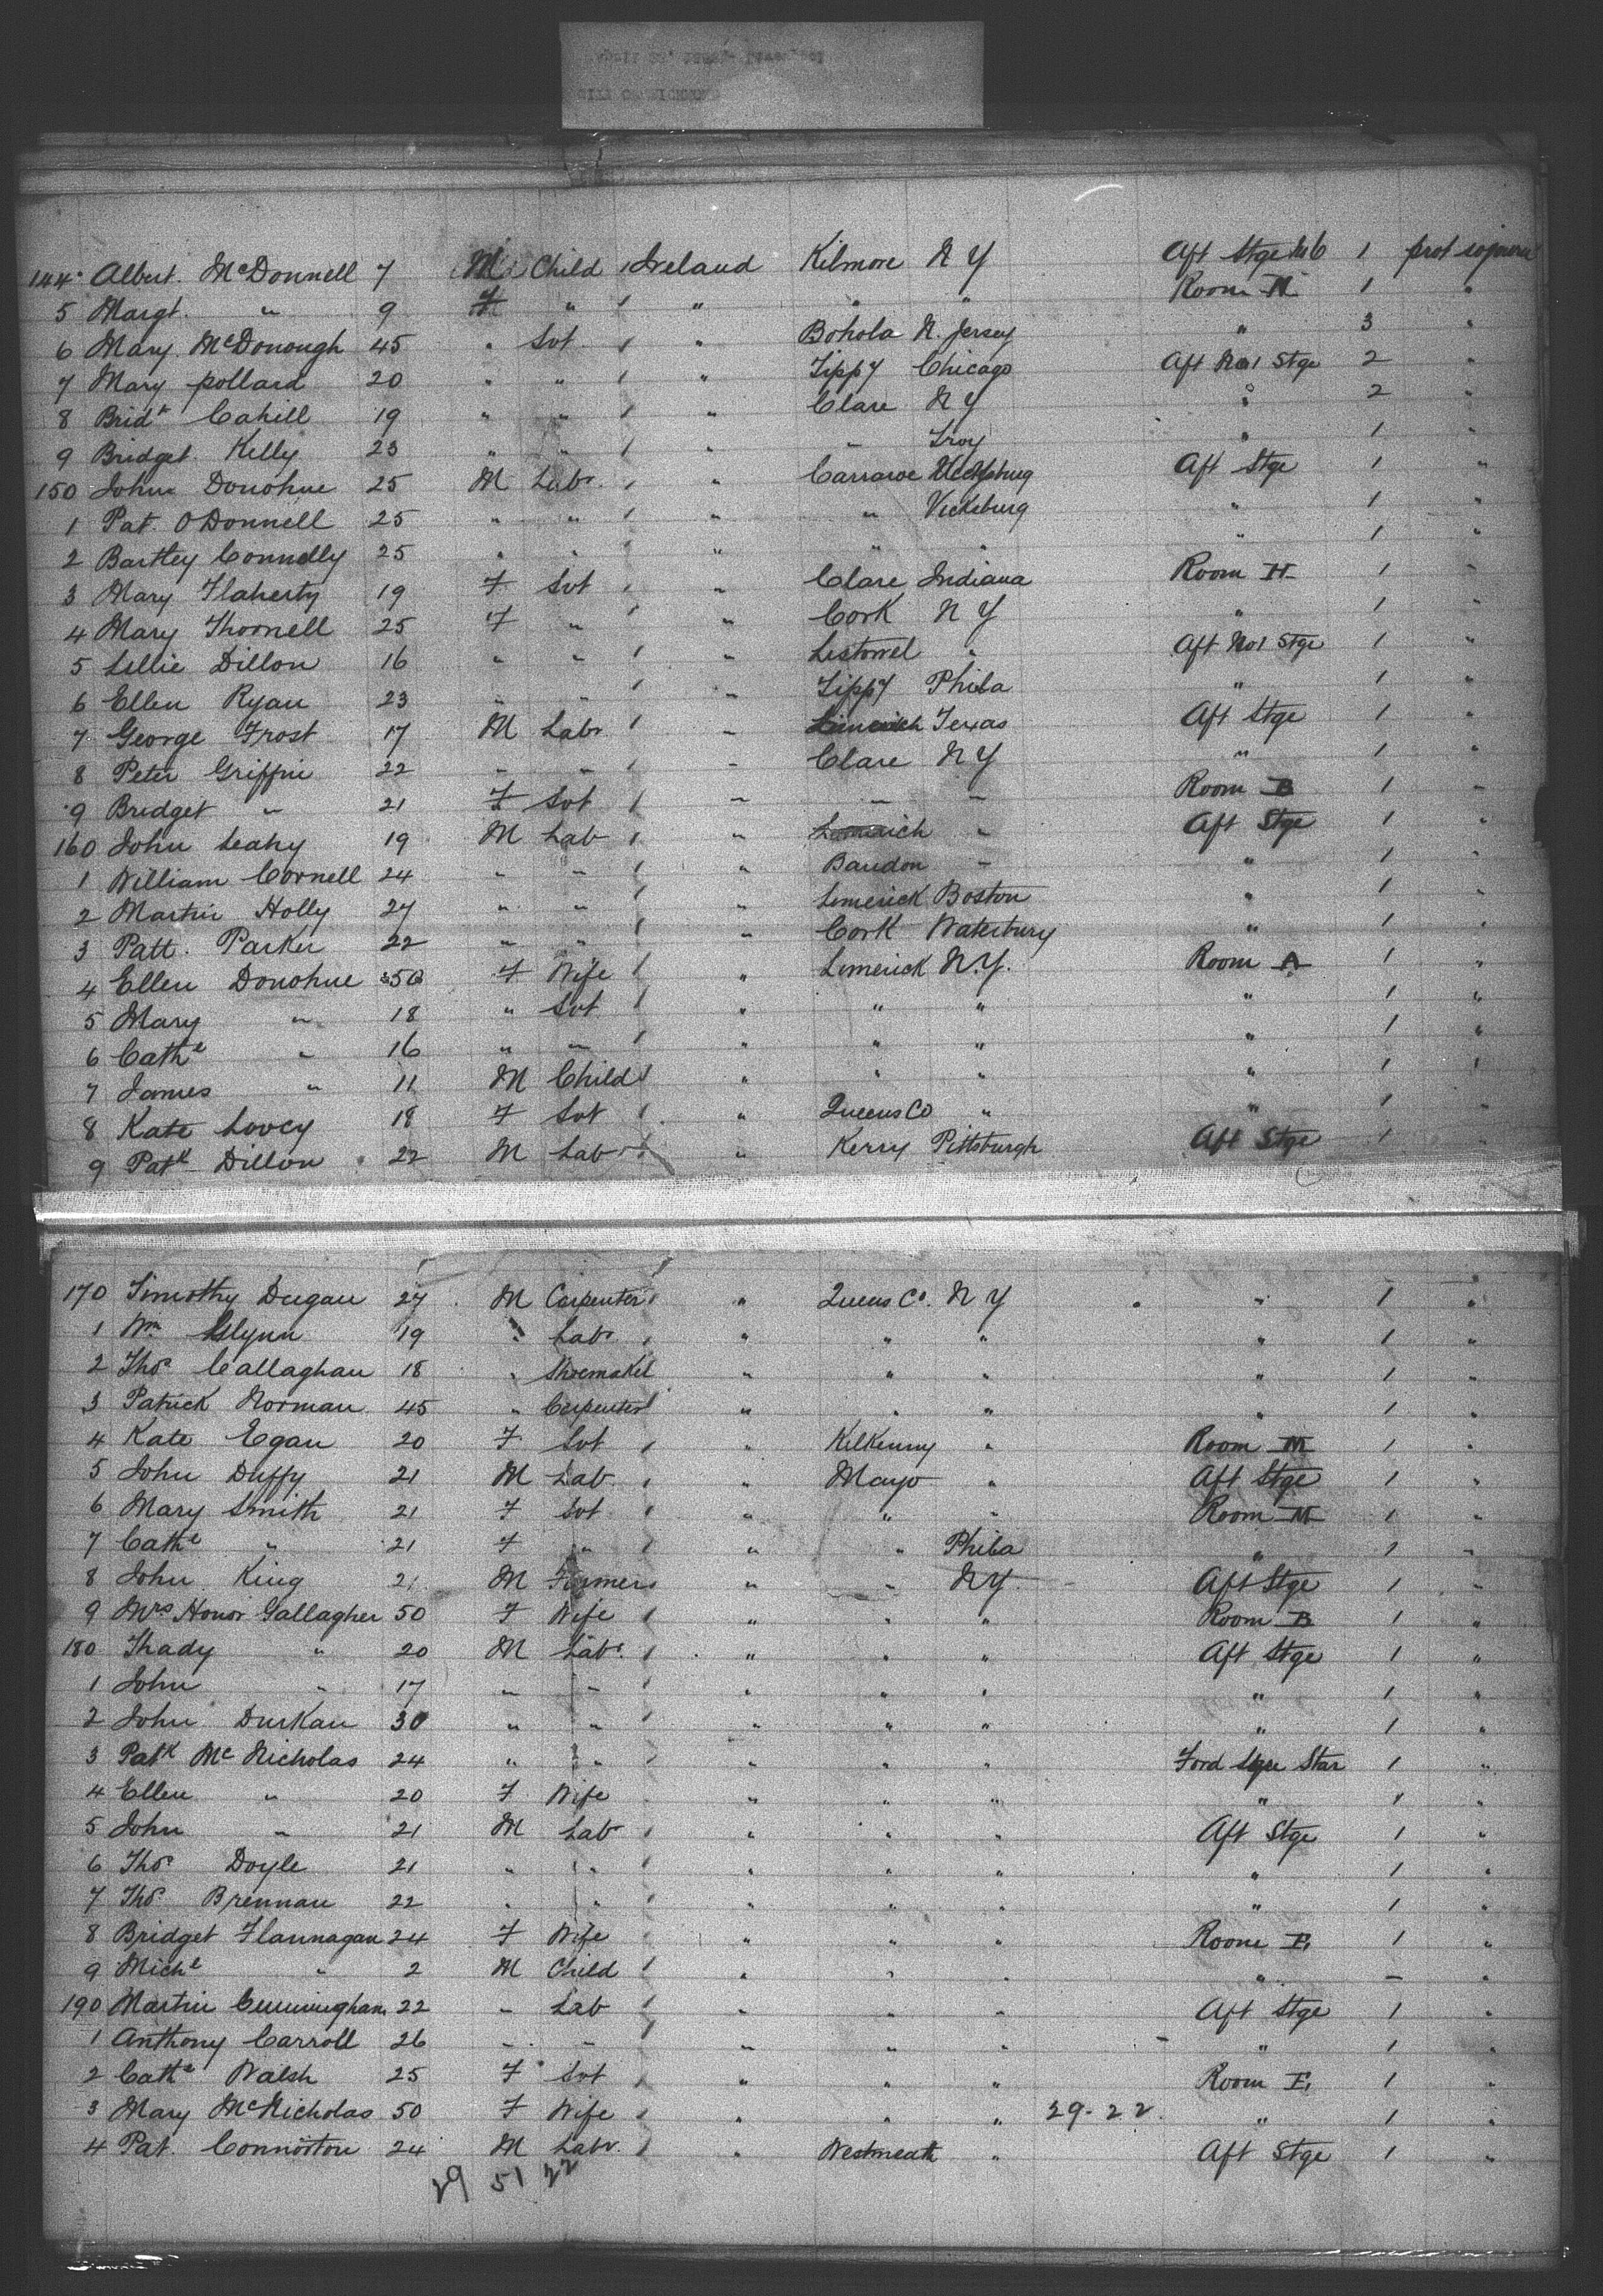 144 Albert McDonnell 7 M Child 1 Ireland Kilmore N Y Aft Stge 1 prot sojourn
5 Margt. " 9 F " 1 " " " Room 1 "
6 Mary McDonough 45 " Svt 1 " Bohola N. Jersey " 3 "
7 Mary pollard 20 " " 1 " Tippy Chicago Aft No 1 Stge 2 "
8 Bridt Cahill 19 " " 1 " Clare N Y " 2 "
9 Bridget Kelly 23 " " 1 " " Troy " 1 "
150 John Donohue 25 M Labr. 1 " Carraroe Vicksburg Aft Stge 1 "
1 Pat. O Donnell 25 " " 1 " " Vicksburg " 1 "
2 Bartley Connolly 25 " " 1 " " " " 1 "
3 Mary Flaherty 19 F Svt 1 " Clare Indiana Room H 1 "
4 Mary Thornell 25 F " 1 " Cork N Y " 1 "
5 Lillie Dillon 16 " " 1 " Listowel " Aft No 1 Stge 1 "
6 Ellen Ryan 23 " " 1 " Tippy Phila " 1 "
7 George Frost 17 M Labr 1 " Limerick Texas Aft Stge 1 "
8 Peter Griffin 22 " " 1 " Clare N Y " 1 "
9 Bridget " 21 F Svt 1 " " " Room B 1 "
160 John Leahy 19 M Lab 1 " Limerick " Aft Stge 1 "
1 William Cornell 24 " " 1 " Bandon " " 1 "
2 Martin Holly 27 " " 1 " Limerick Boston " 1 "
3 Patt. Parker 22 " " 1 " Cork Waterbury " 1 "
4 Ellen Donohue 50 F Wife 1 " Limerick N.Y. Room A 1 "
5 Mary " 18 " Svt 1 " " " " 1 "
6 Cathe " 16 " " 1 " " " " 1 "
7 James " 11 M Child 1 " " " " 1 "
8 Kate Lovey 18 F Svt 1 " Queens Co " " 1 "
9 Patk Dillon 22 M Lab 1 " Kerry Pittsburgh Aft Stge 1
170 Timothy Dugan 27 M Carpenter 1 " Queens Co. N Y " 1 "
1 Wm Glynn 19 " Labr. 1 " " " " 1 "
2 Thos Callaghan 18 " Shoemaker " " " " 1 "
3 Patrick Norman 45 " Carpenter 1 " " " " 1 "
4 Kate Egan 20 F Svt 1 " Kilkenny " Room M 1 "
5 John Duffy 21 M Lab 1 " Mayo " Aft Stge 1 "
6 Mary Smith 21 F Svt 1 " " " Room M 1 "
7 Cathe " 21 F " 1 " " Phila " 1 "
8 John King 21 M Farmer 1 " " N Y. Aft Stge 1 "
9 Mrs Honor Gallagher 50 F Wife 1 " " " Room B 1 "
180 Thady " 20 M Labr 1 " " " Aft Stge 1 "
1 John " 17 " " 1 " " " " 1 "
2 John Durkan 30 " " 1 " " " " 1 "
3 Patk Mc Nicholas 24 " " 1 " " " Ford Star 1 "
4 Ellen " 20 F Wife " " " " 1 "
5 John " 21 M Lab 1 " " " Aft Stge 1 "
6 Thos Doyle 21 " " 1 " " " " 1 "
7 Thos Brennan 22 " " 1 " " " " 1 "
8 Bridget Flannagan 24 F Wife 1 " " " Room E 1 "
9 Miche " 2 M Child 1 " " " " - "
190 Martin Cunningham 22 " Lab 1 " " " Aft Stge 1 "
1 Anthony Carroll 26 " " 1 " " " " 1 "
2 Cathe Walsh 25 F Svt 1 " " " Room E 1 "
3 Mary McNicholas 50 F Wife 1 " " " 29-22 " 1 "
4 Pat. Connorton 24 M Labr. 1 " Westmeath " Aft Stge 1 "
29 51 22